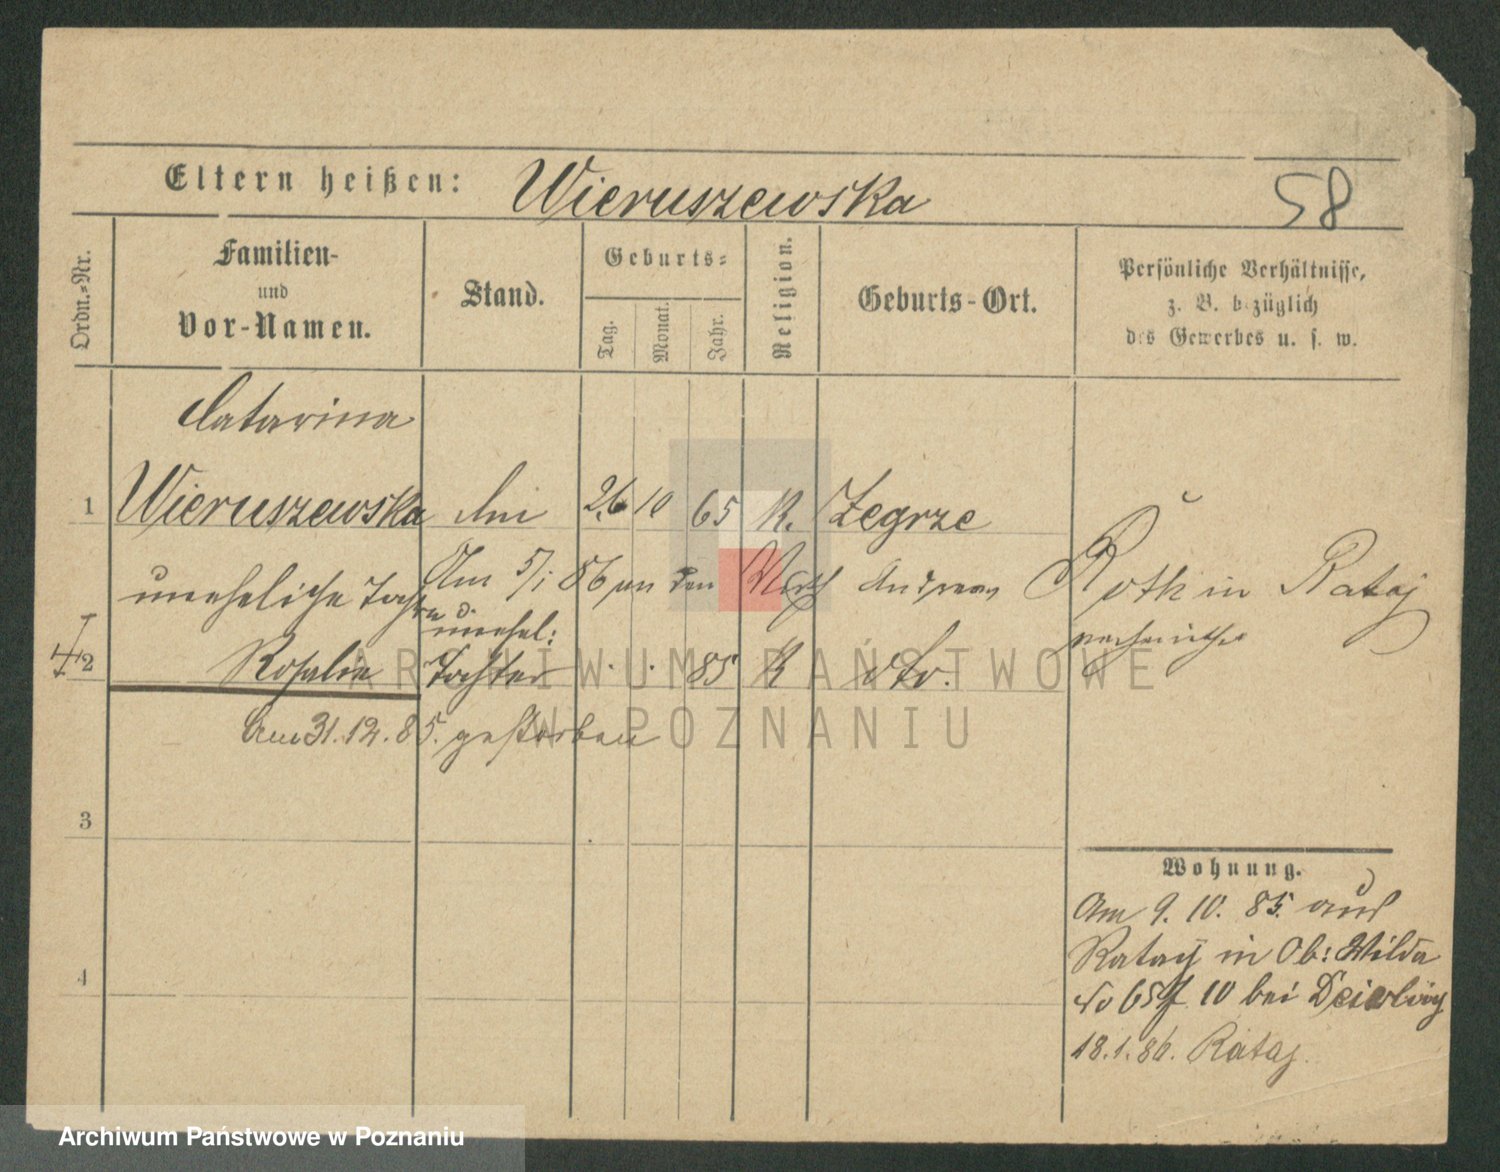 Eltern heißen: Wieruszewska 58
Ordn.-Nr.
Familien-
und
Vor-Namen.
Stand.
Geburts-
Tag.
Monat.
Jahr.
Religion.
Geburts-Ort.
Persönliche Verhältnisse,
z. B. bezüglich
des Gewerbes u. s. w.
Catarina
1 Wieruszewska 26 10 65 K. Zegrze
uneheliche Tochter
Am 5/1 86 an den Andreas Roth in Rataj
verheirathet
unehel:
2 Rosalie Tochter . . 85 K dto.
Am 31.12.85. gestorben
3
4
Wohnung.
Am 9. 10. 85. aus
Rataj in Ob: Wilda
No 65 f 10 bei
18.1.86. Rataj.
ARCHIWUM PAŃSTWOWE
W POZNANIU
Archiwum Państwowe w Poznaniu